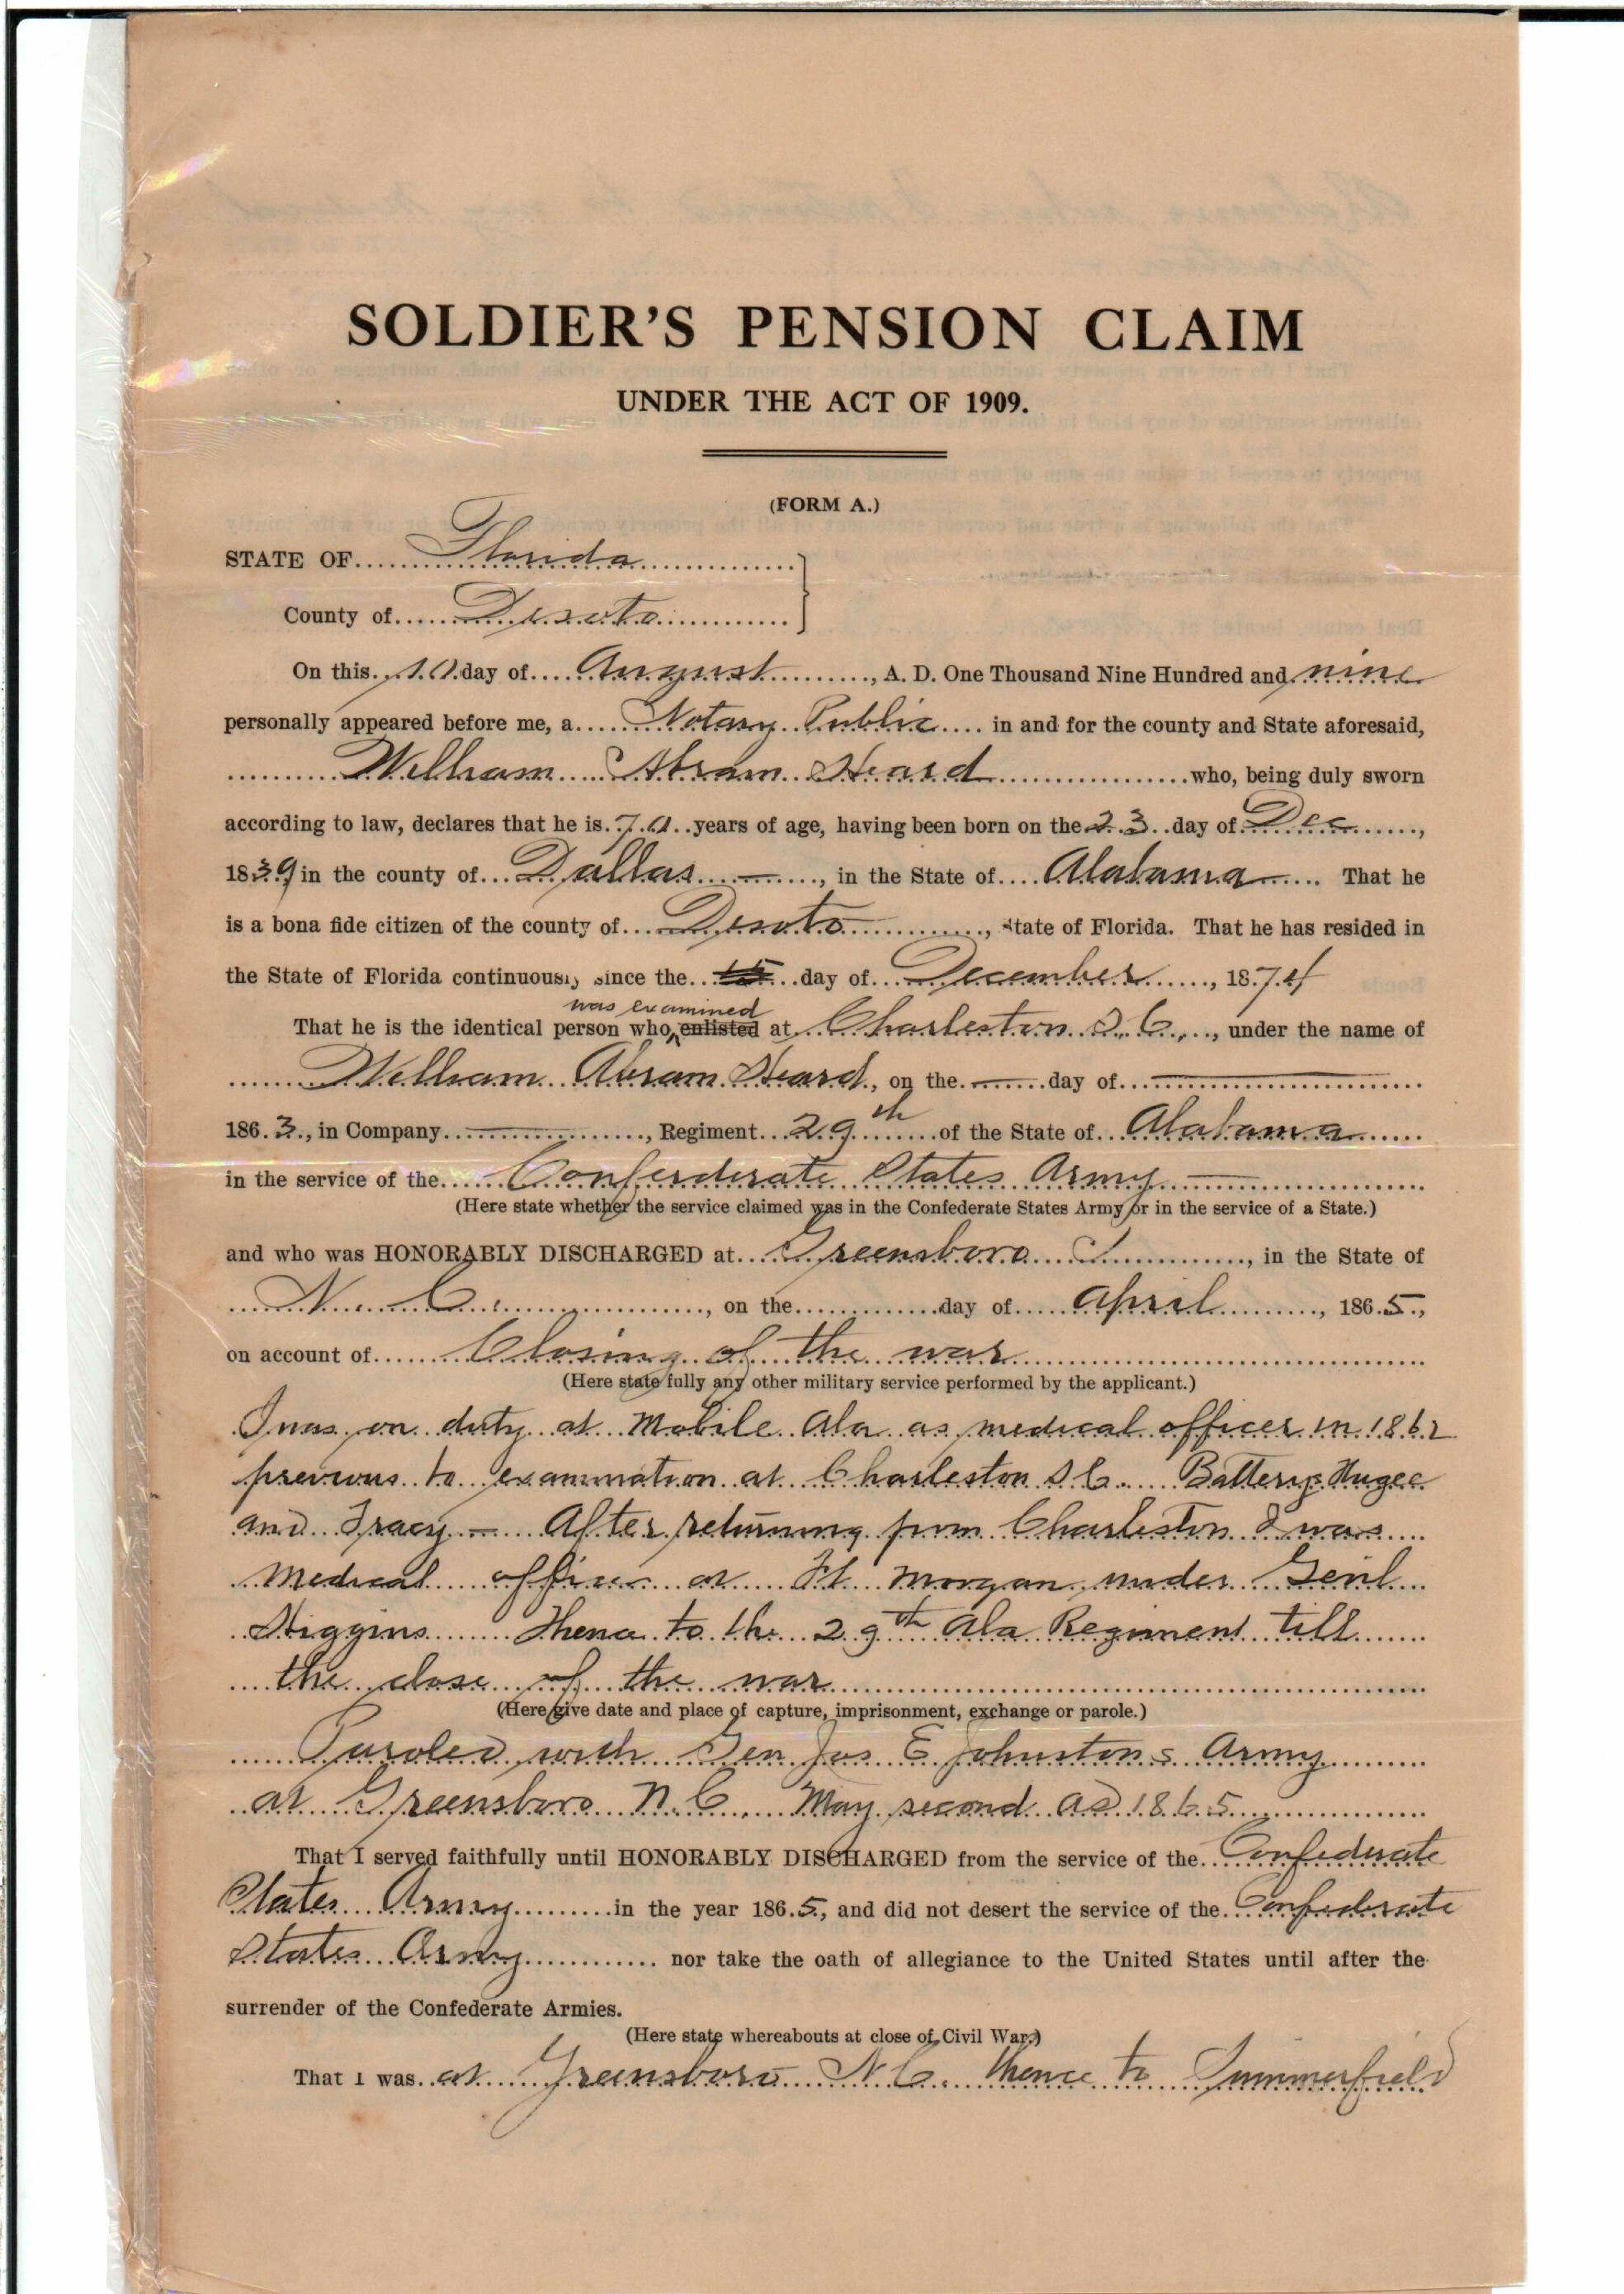 SOLDIER'S PENSION CLAIM
UNDER THE ACT OF 1909.
(FORM A.)
STATE OF Florida
County of Desoto
On this 10 day of August, A. D. One Thousand Nine Hundred and nine
personally appeared before me, a Notary Public in and for the county and State aforesaid,
William Abram Heard who, being duly sworn
according to law, declares that he is 70 years of age, having been born on the 23 day of Dec,
1839 in the county of Dallas, in the State of Alabama That he
is a bona fide citizen of the county of Desoto, State of Florida. That he has resided in
the State of Florida continuously since the 15 day of December, 1874
was examined
That he is the identical person who enlisted at Charleston S.C., under the name of
William Abram Heard, on the — day of —
1863, in Company —, Regiment 29th of the State of Alabama
in the service of the Confederate States Army —
(Here state whether the service claimed was in the Confederate States Army or in the service of a State.)
and who was HONORABLY DISCHARGED at Greensboro, in the State of
N. C., on the day of April, 1865,
on account of Closing of the war
(Here state fully any other military service performed by the applicant.)
I was on duty at Mobile Ala as medical officer in 1862
previous to examination at Charleston S C. Batterys Hugee
and Tracy — After returning from Charleston I was
medical officer at Ft morgan under Genl
Higgins Thence to the 29th Ala Regiment till
the close of the war
(Here give date and place of capture, imprisonment, exchange or parole.)
Paroled with Gen Jos E Johnstons Army
at Greensboro N.C. May second AD 1865
That I served faithfully until HONORABLY DISCHARGED from the service of the Confederate
States Army in the year 1865, and did not desert the service of the Confederate
States Army nor take the oath of allegiance to the United States until after the
surrender of the Confederate Armies.
(Here state whereabouts at close of Civil War.)
That I was at Greensboro N C. thence to Summerfield